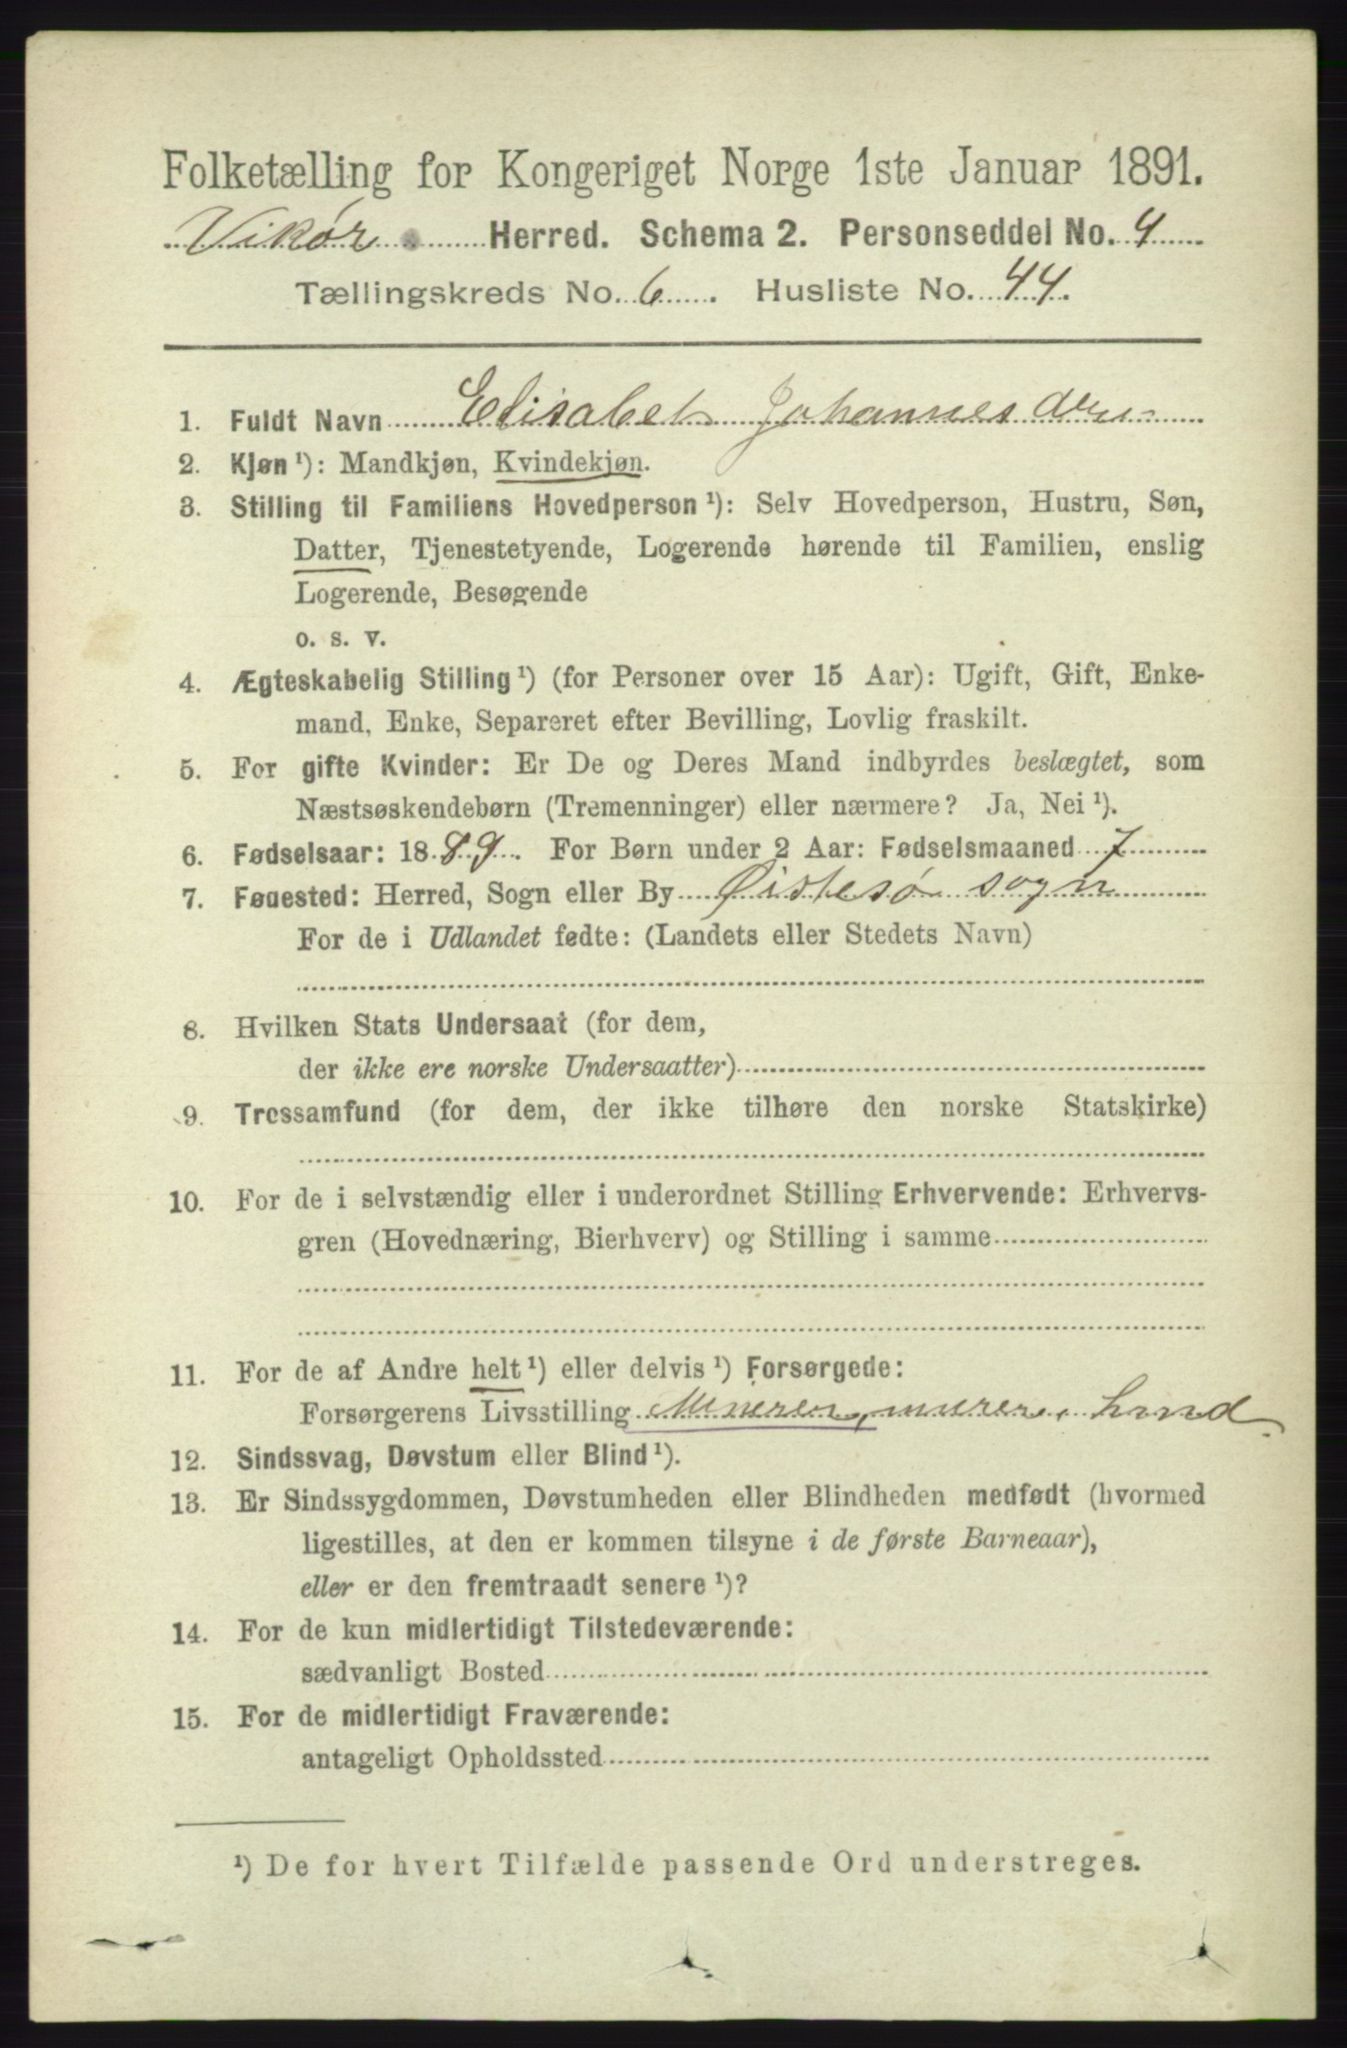 Folketælling for Kongeriget Norge 1ste Januar 1891.
Vikør Herred. Schema 2. Personseddel No. 4
Tællingskreds No. 6. Husliste No. 44.
1. Fuldt Navn Elisabet Johannesdtr
2. Kjøn ¹): Mandkjøn, Kvindekjøn.
3. Stilling til Familiens Hovedperson ¹): Selv Hovedperson, Hustru, Søn,
Datter, Tjenestetyende, Logerende hørende til Familien, enslig
Logerende, Besøgende
o. s. v.
4. Ægteskabelig Stilling ¹) (for Personer over 15 Aar): Ugift, Gift, Enke-
mand, Enke, Separeret efter Bevilling, Lovlig fraskilt.
5. For gifte Kvinder: Er De og Deres Mand indbyrdes beslægtet, som
Næstsøskendebørn (Tremenninger) eller nærmere? Ja, Nei ¹).
6. Fødselsaar: 1889. For Børn under 2 Aar: Fødselsmaaned 7
7. Føuested: Herred, Sogn eller By Østesø sogn
For de i Udlandet fødte: (Landets eller Stedets Navn)
8. Hvilken Stats Undersaat (for dem,
der ikke ere norske Undersaatter)
9. Trossamfund (for dem, der ikke tilhøre den norske Statskirke)
10. For de i selvstændig eller i underordnet Stilling Erhvervende: Erhvervs-
gren (Hovednæring, Bierhverv) og Stilling i samme
11. For de af Andre helt ¹) eller delvis ¹) Forsørgede:
Forsørgerens Livsstilling Minerer, murer,
12. Sindssvag, Døvstum eller Blind ¹).
13. Er Sindssygdommen, Døvstumheden eller Blindheden medfødt (hvormed
ligestilles, at den er kommen tilsyne i de første Barneaar),
eller er den fremtraadt senere ¹)?
14. For de kun midlertidigt Tilstedeværende:
sædvanligt Bosted
15. For de midlertidigt Fraværende:
antageligt Opholdssted
¹) De for hvert Tilfælde passende Ord understreges.